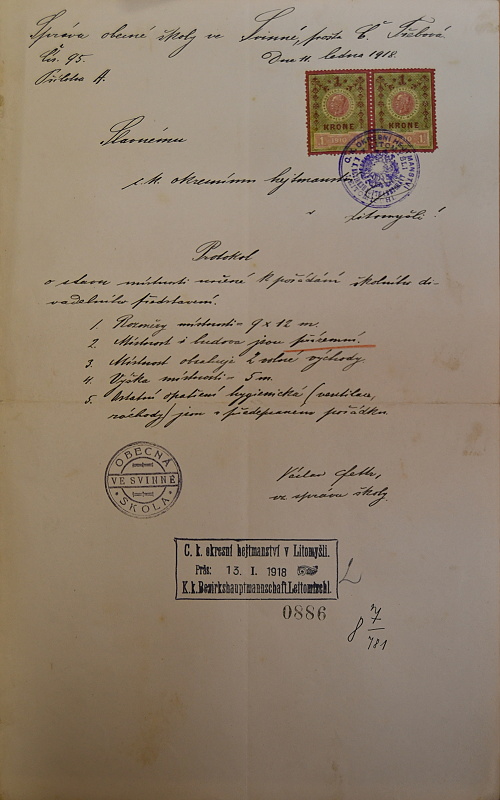 Správa obecné školy ve Svinné, pošta Č. Třebová
Čís. 95.
Dne 11. ledna 1918.
Příloha A.
1 1
KRONE KRONE
1 1910 1910 1
Slavnému
c. k. okresnímu hejtmanství
v Litomyšli!
Protokol
o stavu místnosti určené k pořádání školního di-
vadelního představení.
1. Rozměry místnosti = 9 x 12 m.
2. Místnost i budova jsou přízemní.
3. Místnost obsahuje 2 volné východy
4. Výška místnosti = 5 m.
5. Ostatní opatření hygienická (ventilace,
záchody) jsou v předepsaném pořádku.
OBECNÁ
VE SVINNÉ
ŠKOLA
Václav
ze správy školy.
C. k. okresní hejtmanství v Litomyšli.
Präs: 13. I. 1918
K. k. Bezirkshauptmannschaft Leitomischl.
0886
8 7/781